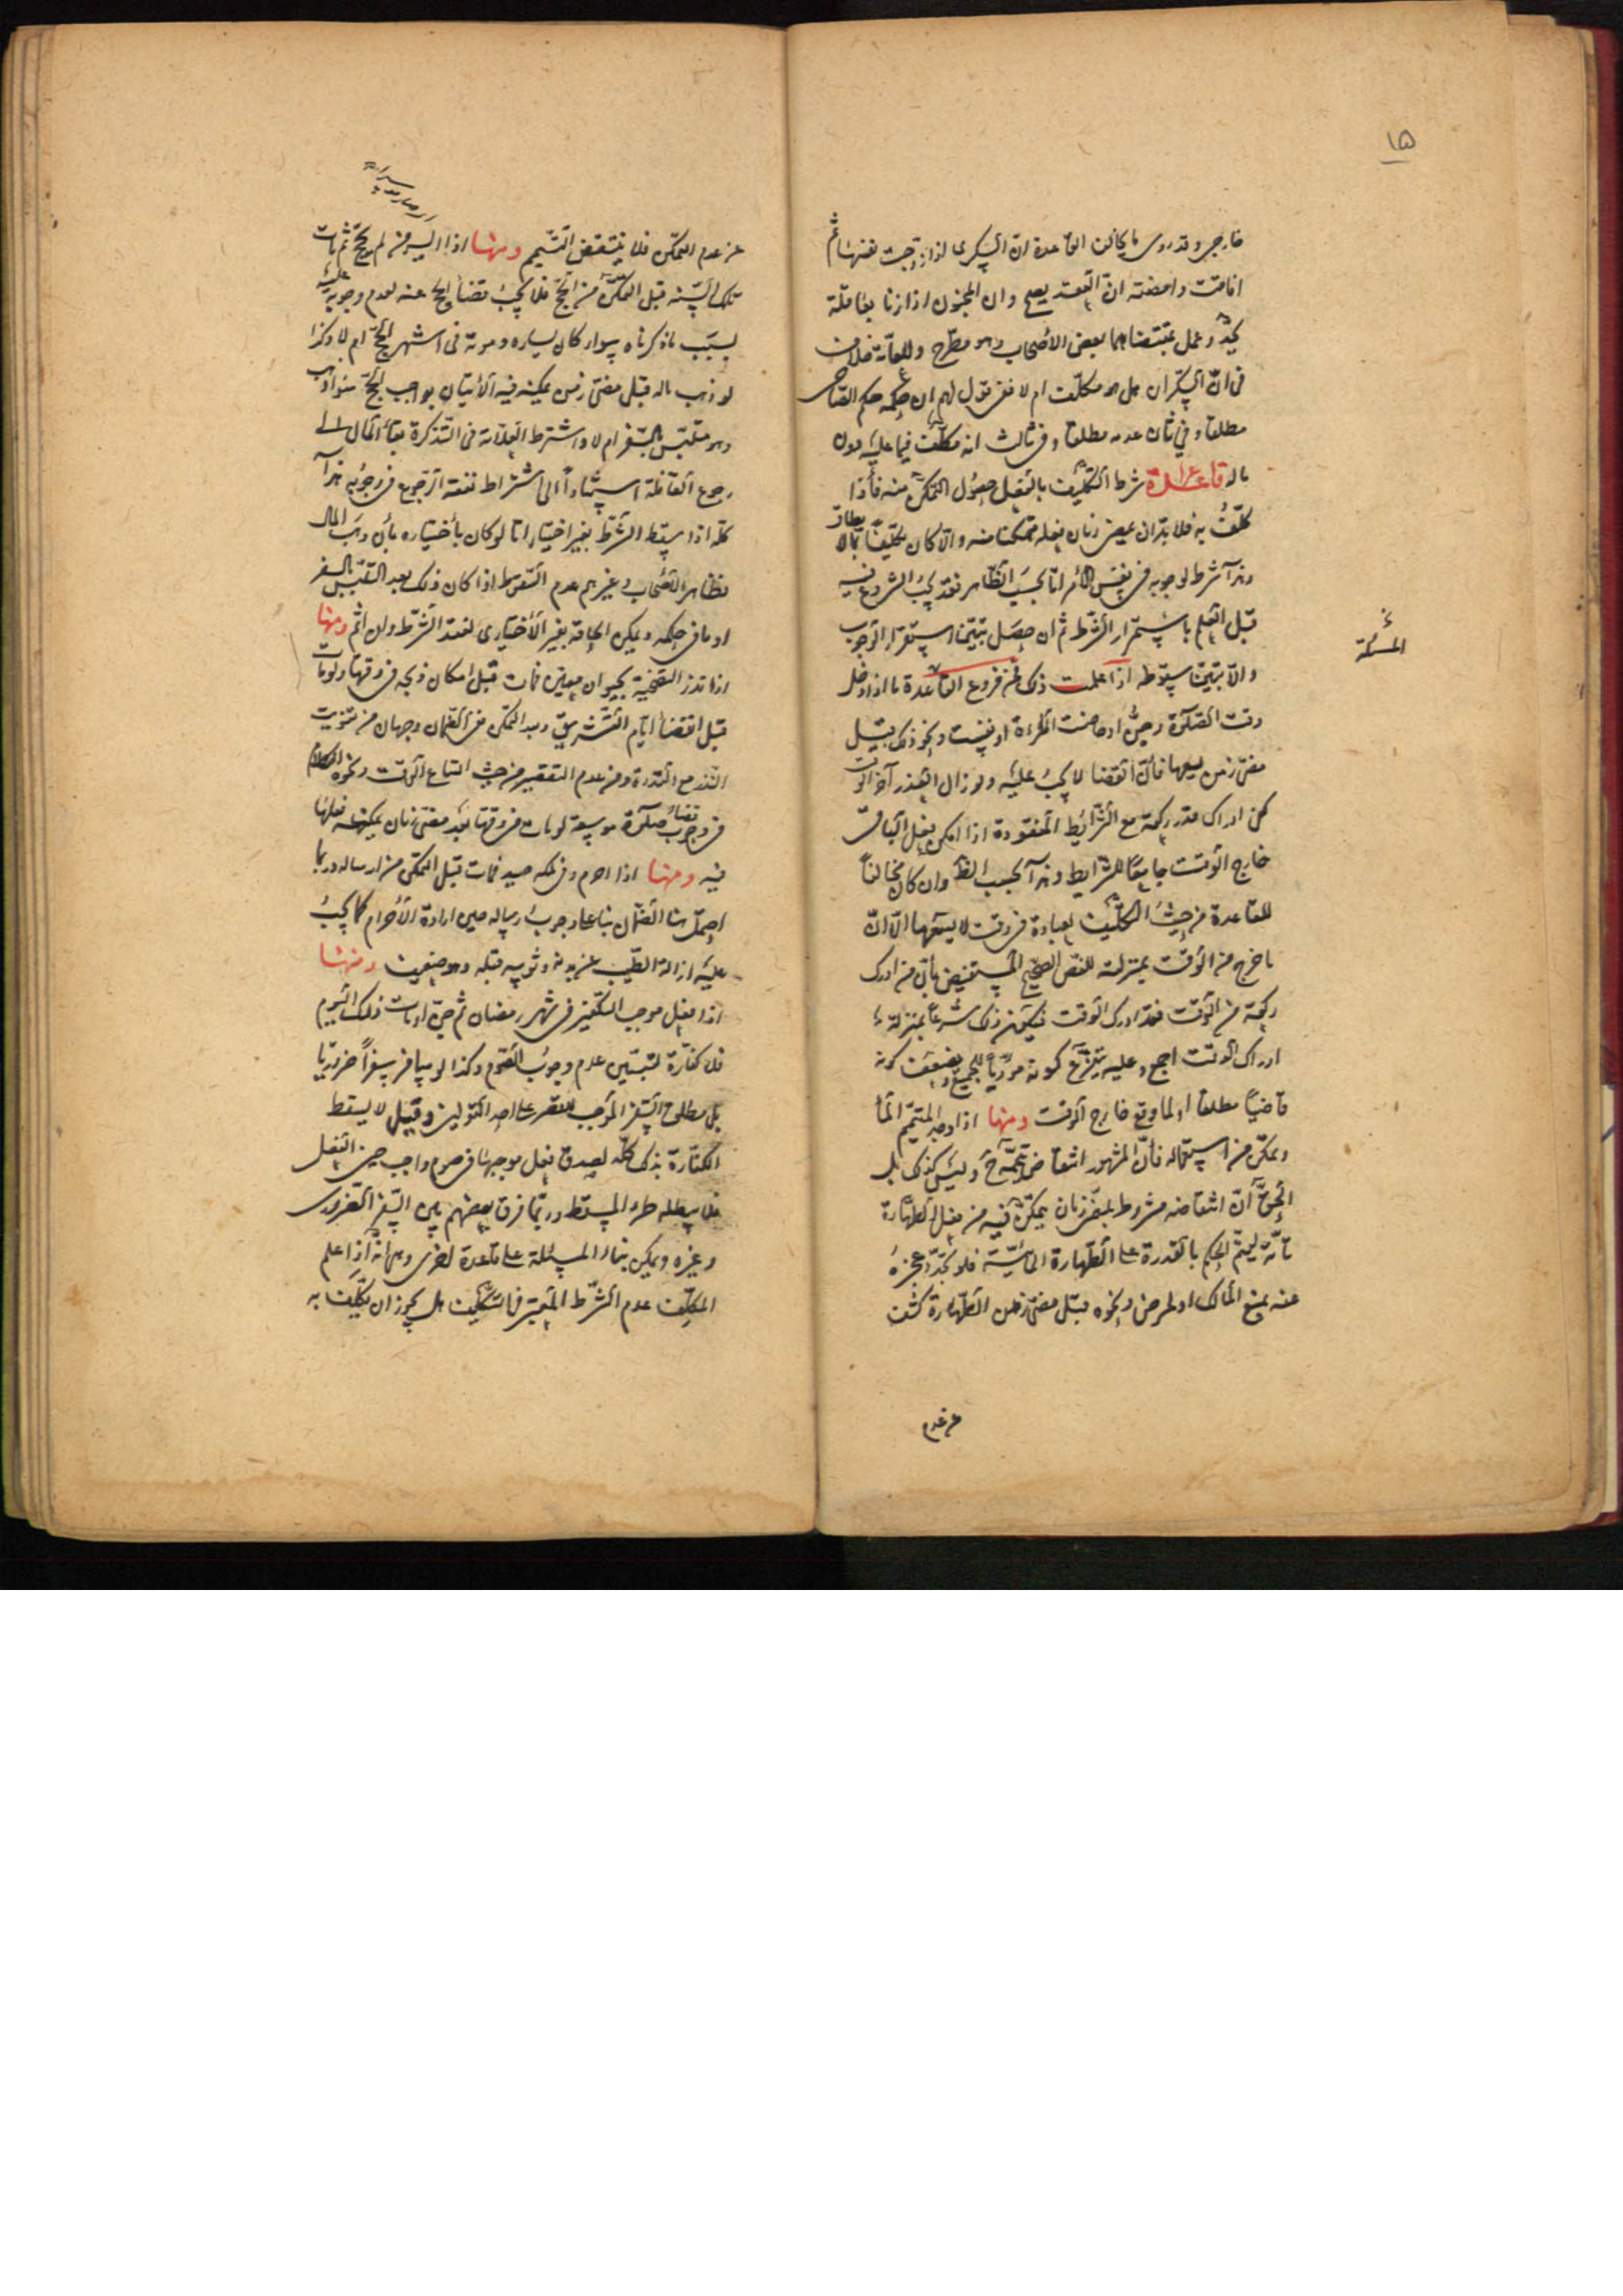 ١٥
خارجي وقد روى ما يخالف القاعدة ان السكرى اذا زوجت نفسها ثم
افاقت وامضته ان العقد يصح وان المجنون اذا زنا بعاقلة
يحد وعمل بمقتضاهما بعض الاصحاب وهو مطرح وللعامة خلاف
في ان السكران هل هو مكلف ام لا ففي قول لهم ان حكمه حكم الصاحي
مطلقا وفي ثان عدمه مطلقا وفي ثالث انه مكلف فيما عليه دون
ماله قاعدة شرط التكليف بالفعل حصول التمكن منه فاذا
كلف به فلا بد ان يمضي زمان يفعله متمكنا منه والا كان تكليفا بما لا يطاق
وهذا شرط لوجوبه في نفس الامر اما بحسب الظاهر فقد يجب الشروع فيه
قبل العلم باستمرار الشرط ثم ان حصل تبيّنا استقرار الوجوب
والا تبيّنا سقوطه اذا علمت ذلك فمن فروع القاعدة ما اذا دخل
المسئلة
وقت الصلوة وجن او حاضت المراة او نفست ونحو ذلك قبل
مضي زمن يسعها فان القضا لا يجب عليه ولو زال العذر آخر الوقت
كفى ادراك قدر ركعة مع الشرائط المفقودة اذا امكن فعل الباقي
خارج الوقت جامعا للشرايط وهذا بحسب الظ وان كان مخالفا
للقاعدة من حيث التكليف بعبادة في وقت لا يسعها الا ان
ما خرج من الوقت بمنزلته للنص الصحيح المستفيض بان من ادرك
ركعة من الوقت فقد ادرك الوقت فيكون ذلك شرعا بمنزلة
ادراك الوقت اجمع وعليه يتفرع كونه مؤديا للجميع ويضعف كونه
قاضيا مطلقا او لما وقع خارج الوقت ومنها اذا وجد المتيمم الماء
وتمكن من استعماله فان المشهور انتقاض تيممه ح وليس كذلك بل
الحق ان انتقاضه مشروط بمضي زمان يتمكن فيه من فعل الطهارة
تامة ليتم الحكم بالقدرة على الطهارة المائية فلو تجدد عجزه
عنه بمنع المالك او لمرض ونحوه قبل مضي زمن الطهارة كشف
عن عدم
عن عدم التمكن فلا ينتقض التيمم ومنها اذا ايسر من لم يحج ثم مات
تلك السنة قبل التمكن من الحج فلا يجب قضاء الحج عنه لعدم وجوبه عليه
بسبب ما ذكرناه سواء كان يساره وموته في اشهر الحج ام لا وكذا
لو ذهب ماله قبل مضي زمن يمكنه فيه الاتيان بواجب الحج سواء ذهب
وهو متلبس بالسفر ام لا واشترط العلامة في التذكرة بقاء المال الى
رجوع القافلة استنادا الى اشتراط نفقة الرجوع في وجوبه هذا
كله اذا سقط الشرط بغير اختياره اما لو كان باختياره بان وهب المال
فظاهر الاصحاب وغيرهم عدم السقوط اذا كان ذلك بعد التلبس بالسفر
او ما في حكمه ويمكن الحاقه بغير الاختياري لفقد الشرط وان اثم ومنها
اذا نذر التضحية بحيوان معين فمات قبل امكان ذبحه في وقتها ولو مات
قبل انقضاء ايام التشريق وبعد التمكن ففي الضمان وجهان من تفويت
النذر مع القدرة ومن عدم التقصير من حيث اتساع الوقت ونحوه الكلام
في وجوب قضاء صلوة موسعة لو مات في وقتها بعد مضي زمان يمكنه فعلها
فيه ومنها اذا احرم وفي ملكه صيد فمات قبل التمكن من ارساله وربما
احتمل هنا الضمان بناء على وجوب ارساله حين ارادة الاحرام كما يجب
عليه ازالة الطيب عن بدنه وثوبيه قبله وهو ضعيف ومنها
اذا فعل موجب التكفير في شهر رمضان ثم جن او مات ذلك اليوم
فلا كفارة لتبين عدم وجوب الصوم وكذا لو سافر سفرا ضروريا
بل مطلق السفر الموجب للقصر على احد القولين وقيل لا يسقط
الكفارة بذلك كله لصدق فعل موجبها في صوم واجب حين الفعل
فلا يبطله طرو المسقط وربما فرق بعضهم بين السفر الضروري
وغيره ويمكن بناء المسئلة على قاعدة اخرى وهي انه اذا علم
المكلف عدم الشرط المعتبر في التكليف هل يجوز ان يكلف به